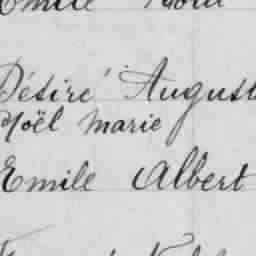 Emile
Désiré August
Noël marie
Emile Albert